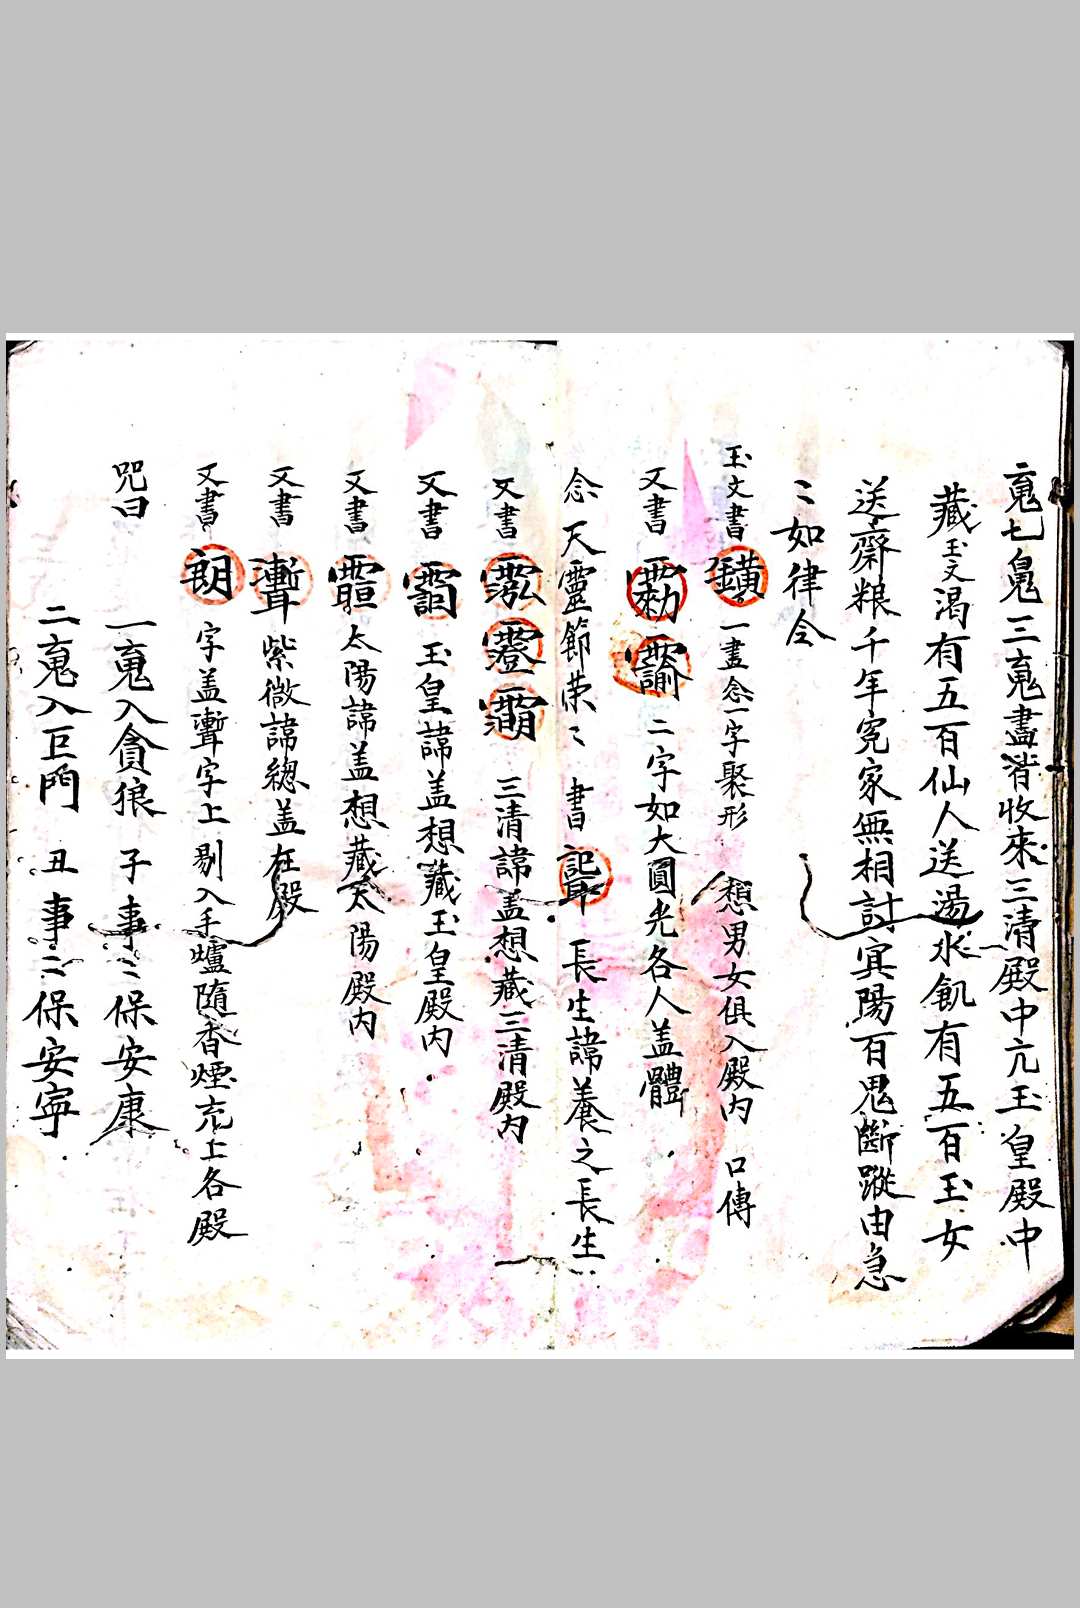 三䰟七鬼三䰟盡皆收來三清殿中亢玉皇殿中
藏玉文渴有五百仙人送湯水飢有五百玉女
送齋粮千年冤家無相討寅陽百鬼斷蹤由急
〻如律令
玉文書 一畫念一字聚形 想男女俱入殿內 口傳
又書 二字如大圓光各人盖體
念天靈節荣〻書 長生諱養之長生
又書 三清諱盖想藏三清殿內
又書 玉皇諱盖想藏玉皇殿內
又書 太陽諱盖想藏太陽殿內
又書 紫微諱總盖在殿
又書 字盖字上剔入手爐隨香煙充上各殿
咒曰 一䰟入貪狼 子事〻保安康
二䰟入巨門 丑事〻保安寧